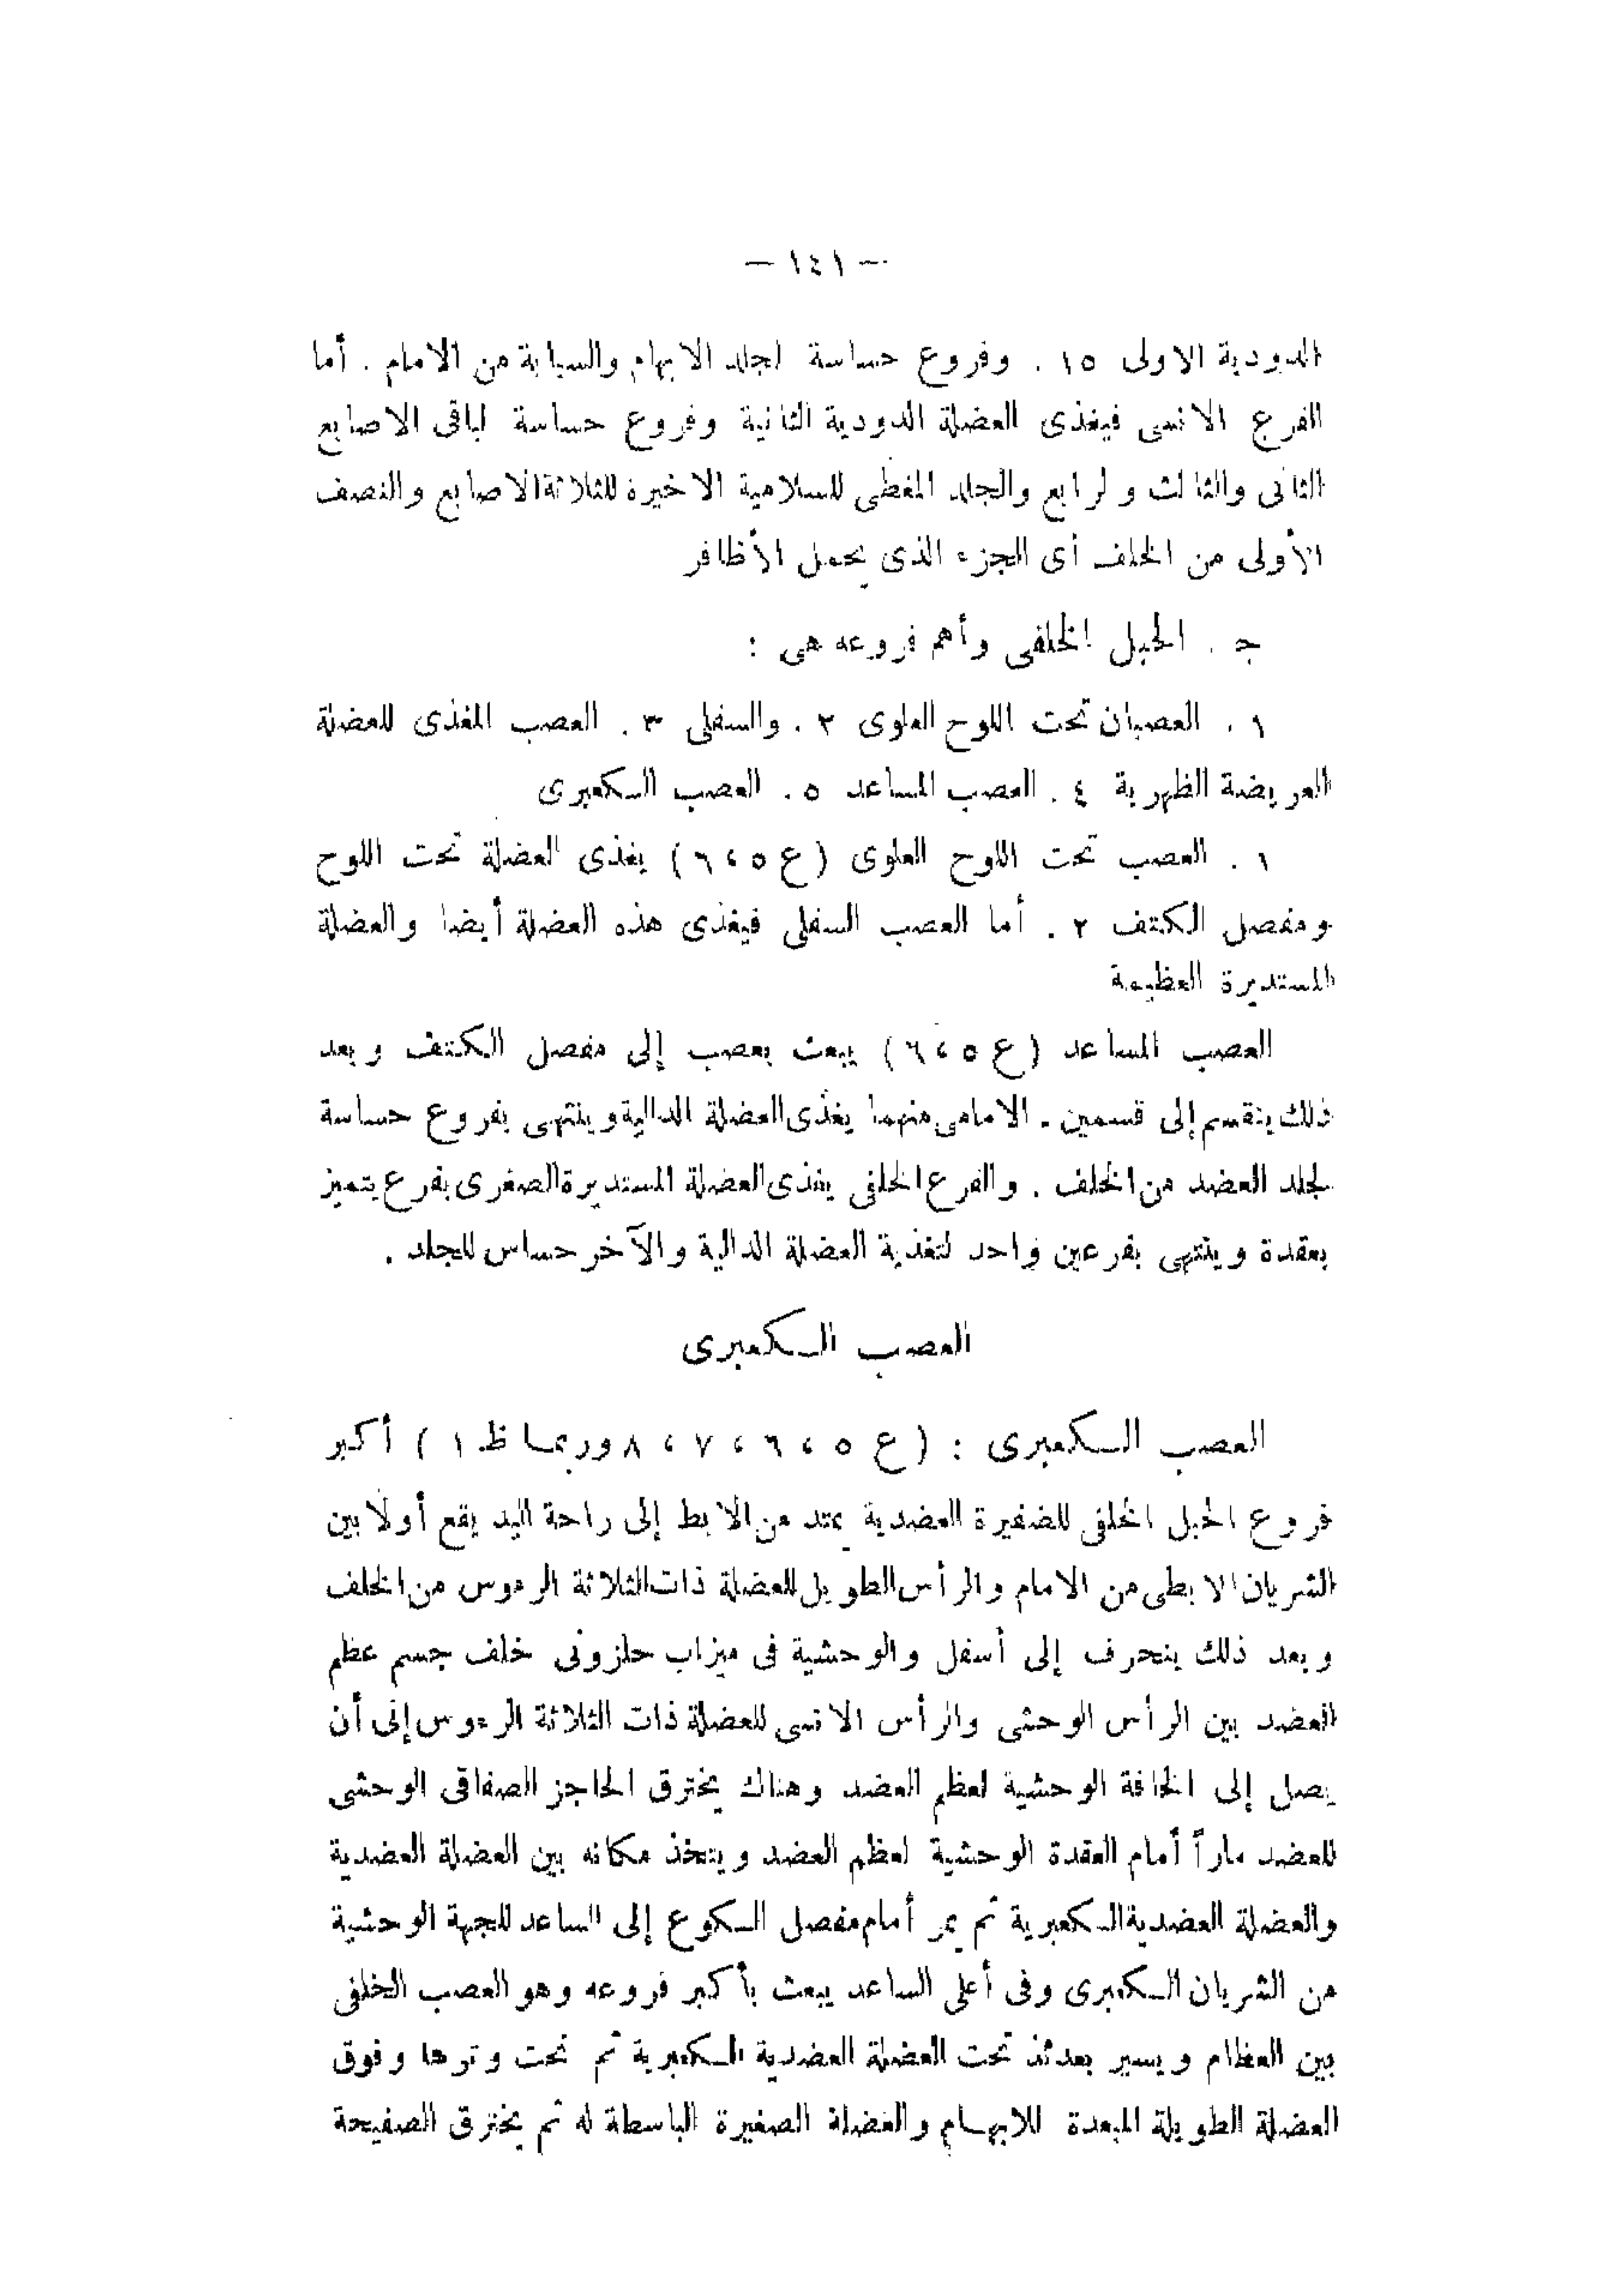 — ١٤١ —
الدودية الاولى ١٥ . وفروع حساسة لجلد الابهام والسبابة من الامام . أما
الفرع الانسى فيغذى العضلة الدودية الثانية وفروع حساسة لباقى الاصابع
الثانى والثالث ولرابع والجلد المغطى للسلامية الاخيرة للثلاثة الاصابع والنصف
الأولى من الخلف أى الجزء الذى يحمل الأظافر
ج . الحبل الخلفى وأهم فروعه هى :
١ . العصبان تحت اللوح العلوى ٢ . والسفلى ٣ . العصب المغذى للعضلة
العريضة الظهرية ٤ . العصب المساعد ٥ . العصب الكعبرى
١ . العصب تحت اللوح العلوى (ع ٥ ، ٦ ) يغذى العضلة تحت اللوح
ومفصل الكتف ٢ . أما العصب السفلى فيغذى هذه العضلة أيضا والعضلة
المستديرة العظيمة
العصب المساعد (ع ٥ ، ٦ ) يبعث بعصب إلى مفصل الكتف وبعد
ذلك ينقسم إلى قسمين . الامامى منهما يغذى العضلة الدالية وينتهى بفروع حساسة
لجلد العضد من الخلف . والفرع الخلفى يغذى العضلة المستديرة الصغرى بفرع يتميز
بعقدة وينتهى بفرعين واحد لتغذية العضلة الدالية والآخر حساس للجلد .
العصب الكعبرى
العصب الكعبرى : (ع ٥ ، ٦ ، ٧ ، ٨ وربما ظ ١ ) أكبر
فروع الحبل الخلفى للضفيرة العضدية يمتد من الابط إلى راحة اليد يقع أولا بين
الشريان الابطى من الامام والرأس الطويل للعضلة ذات الثلاثة الرءوس من الخلف
وبعد ذلك ينحرف إلى أسفل والوحشية فى ميزاب حلزونى خلف جسم عظم
العضد بين الرأس الوحشى والرأس الانسى للعضلة ذات الثلاثة الرءوس إلى أن
يصل إلى الحافة الوحشية لعظم العضد وهناك يخترق الحاجز الصفاقى الوحشى
للعضد ماراً أمام العقدة الوحشية لعظم العضد ويتخذ مكانه بين العضلة العضدية
والعضلة العضدية الكعبرية ثم يمر أمام مفصل الكوع إلى الساعد للجهة الوحشية
من الشريان الكعبرى وفى أعلى الساعد يبعث بأكبر فروعه وهو العصب الخلفى
بين العظام ويسير بعدئذ تحت العضلة العضدية الكعبرية ثم تحت وترها وفوق
العضلة الطويلة المبعدة للابهام والعضلة الصغيرة الباسطة له ثم يخترق الصفيحة